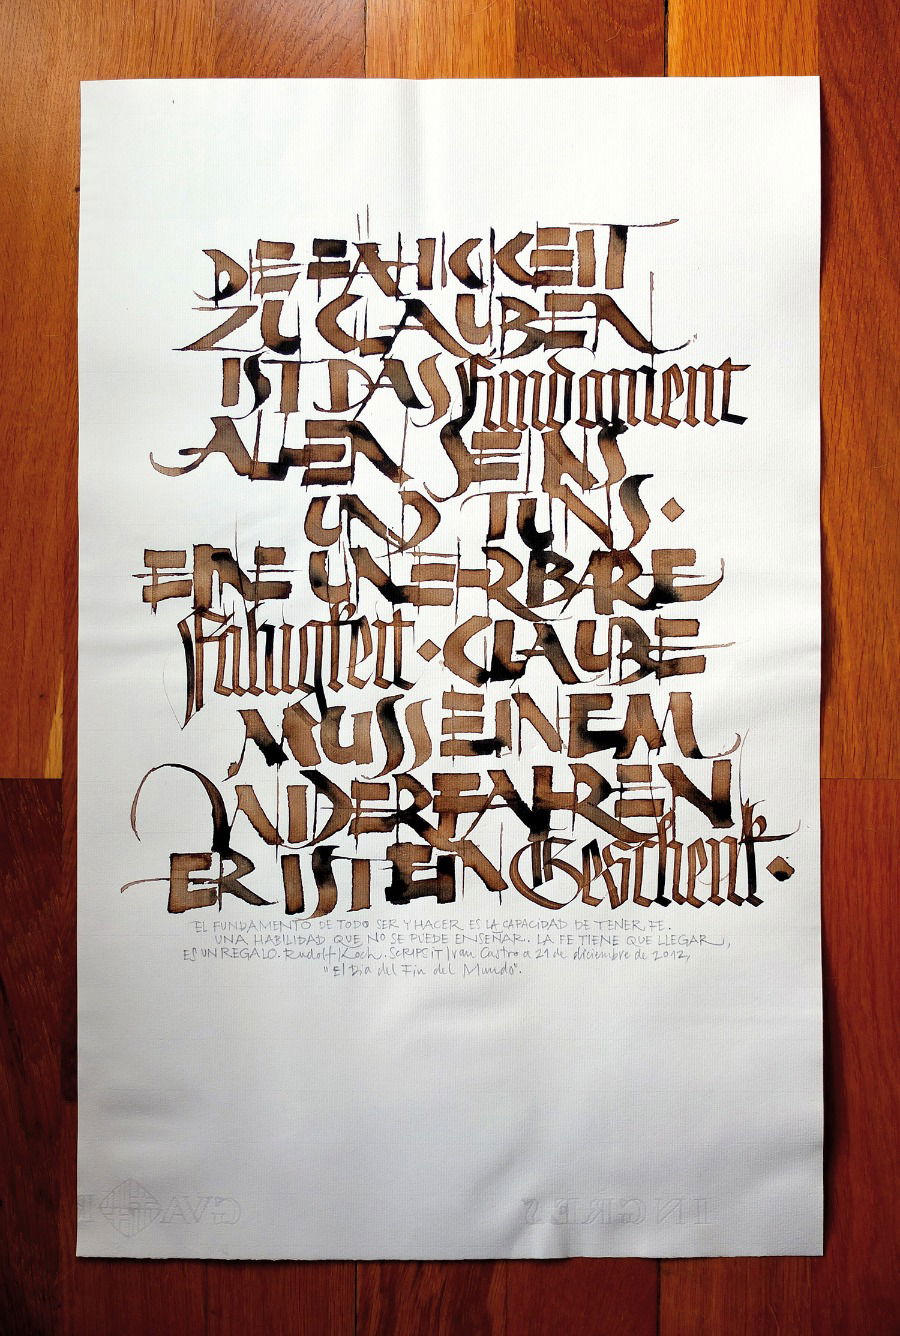 DIE FÄHIGKEIT
ZU GLAUBEN
IST DAS Fundament
ALLEN SEINS
UND TUNS·
EINE UNLEHRBARE
Fähigkeit · GLAUBE
MUSS EINEM
WIDERFAHREN
ER IST EIN Geschenk·
EL FUNDAMENTO DE TODO SER Y HACER ES LA CAPACIDAD DE TENER FE.
UNA HABILIDAD QUE NO SE PUEDE ENSEÑAR. LA FE TIENE QUE LLEGAR,
ES UN REGALO. Rudolf Koch. SCRIPSIT Ivan Castro a 21 de diciembre de 2012,
"El Día del Fin del Mundo".
INGRES